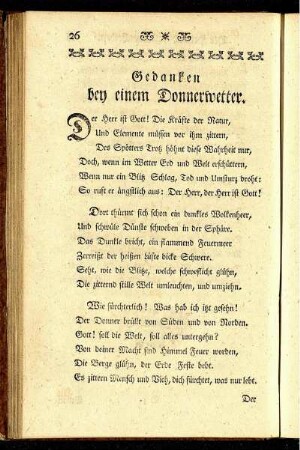 26
Gedanken
bey einem Donnerwetter.
Der Herr ist Gott! Die Kräfte der Natur,
Und Elemente müssen vor ihm zittern,
Des Spötters Trotz höhnt diese Wahrheit nur,
Doch, wenn im Wetter Erd und Welt erschüttern,
Wenn nur ein Blitz Schlag, Tod und Umsturz droht:
So ruft er ängstlich aus: Der Herr, der Herr ist Gott!
Dort thürmt sich schon ein dunkles Wolkenheer,
Und schwüle Dünste schweben in der Sphäre.
Das Dunkle bricht, ein flammend Feuermeer
Zerreißt der heissen Lüfte dicke Schwere.
Seht, wie die Blitze, welche schweflicht glühn,
Die zitternd stille Welt umleuchten, und umziehn.
Wie fürchterlich! Was hab ich itzt gesehn!
Der Donner brüllt von Süden und von Norden.
Gott! soll die Welt, soll alles untergehn?
Von deiner Macht sind Himmel Feuer worden,
Die Berge glühn, der Erde Feste bebt.
Es zittern Mensch und Vieh, dich fürchtet, was nur lebt.
Der